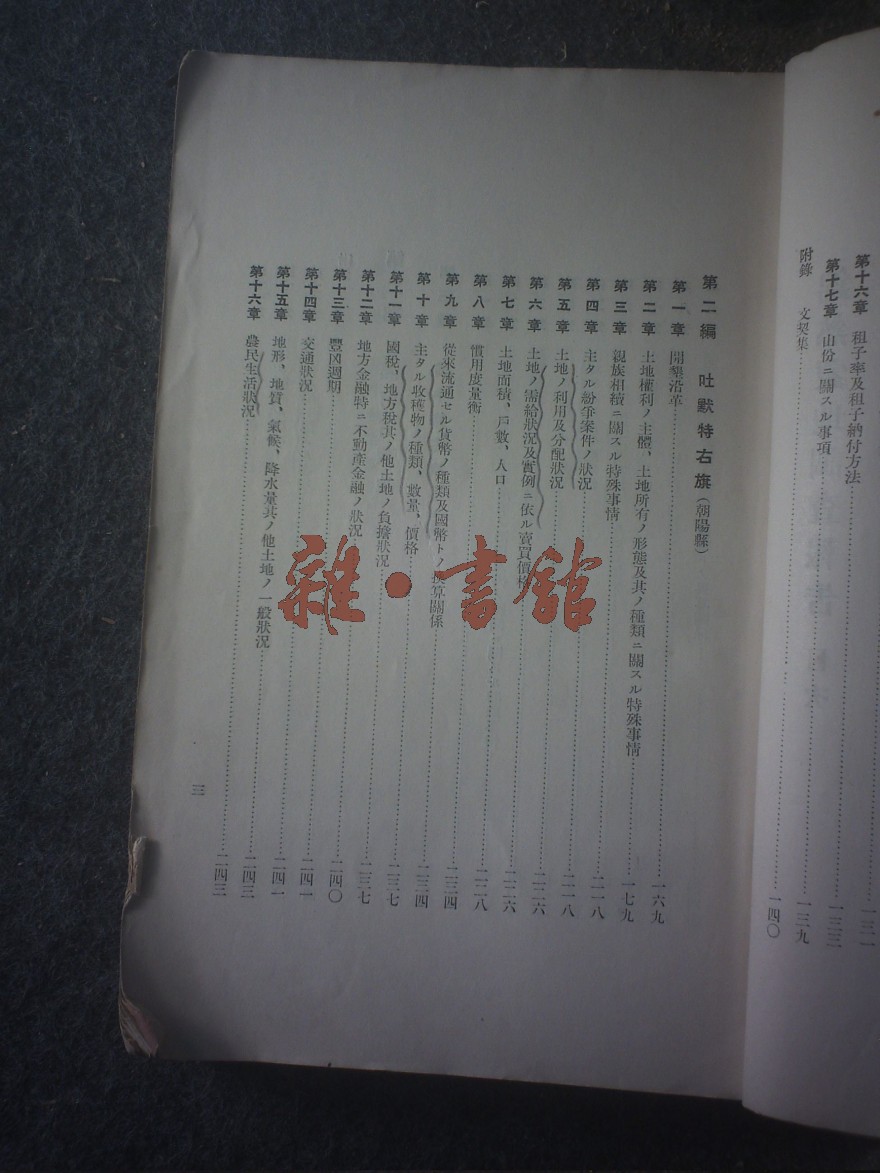 一三一
第十六章 租子率及租子納付方法……一三三
第十七章 山份ニ關スル事項……一三九
附錄 文契集……一四〇
第二編 吐默特右旗(朝陽縣)
第一章 開墾沿革……一六九
第二章 土地權利ノ主體、土地所有ノ形態及其ノ種類ニ關スル特殊事情……一七九
第三章 親族相續ニ關スル特殊事情……二一八
第四章 主タル紛爭案件ノ狀況……二一八
第五章 土地ノ利用及分配狀況……二二六
第六章 土地ノ需給狀況及實例ニ依ル賣買價格……二二六
第七章 土地面積、戶數、人口……二二八
第八章 慣用度量衡……二三四
第九章 從來流通セル貨幣ノ種類及國幣トノ換算關係……二三四
第十章 主タル收穫物ノ種類、數量、價格……二三七
第十一章 國稅、地方稅其ノ他土地ノ負擔狀況……二三七
第十二章 地方金融特ニ不動產金融ノ狀況……二四〇
第十三章 豐凶週期……二四一
第十四章 交通狀況……二四一
第十五章 地形、地質、氣候、降水量其ノ他土地ノ一般狀況……二四三
第十六章 農民生活狀況……二四三
三
雜·書館